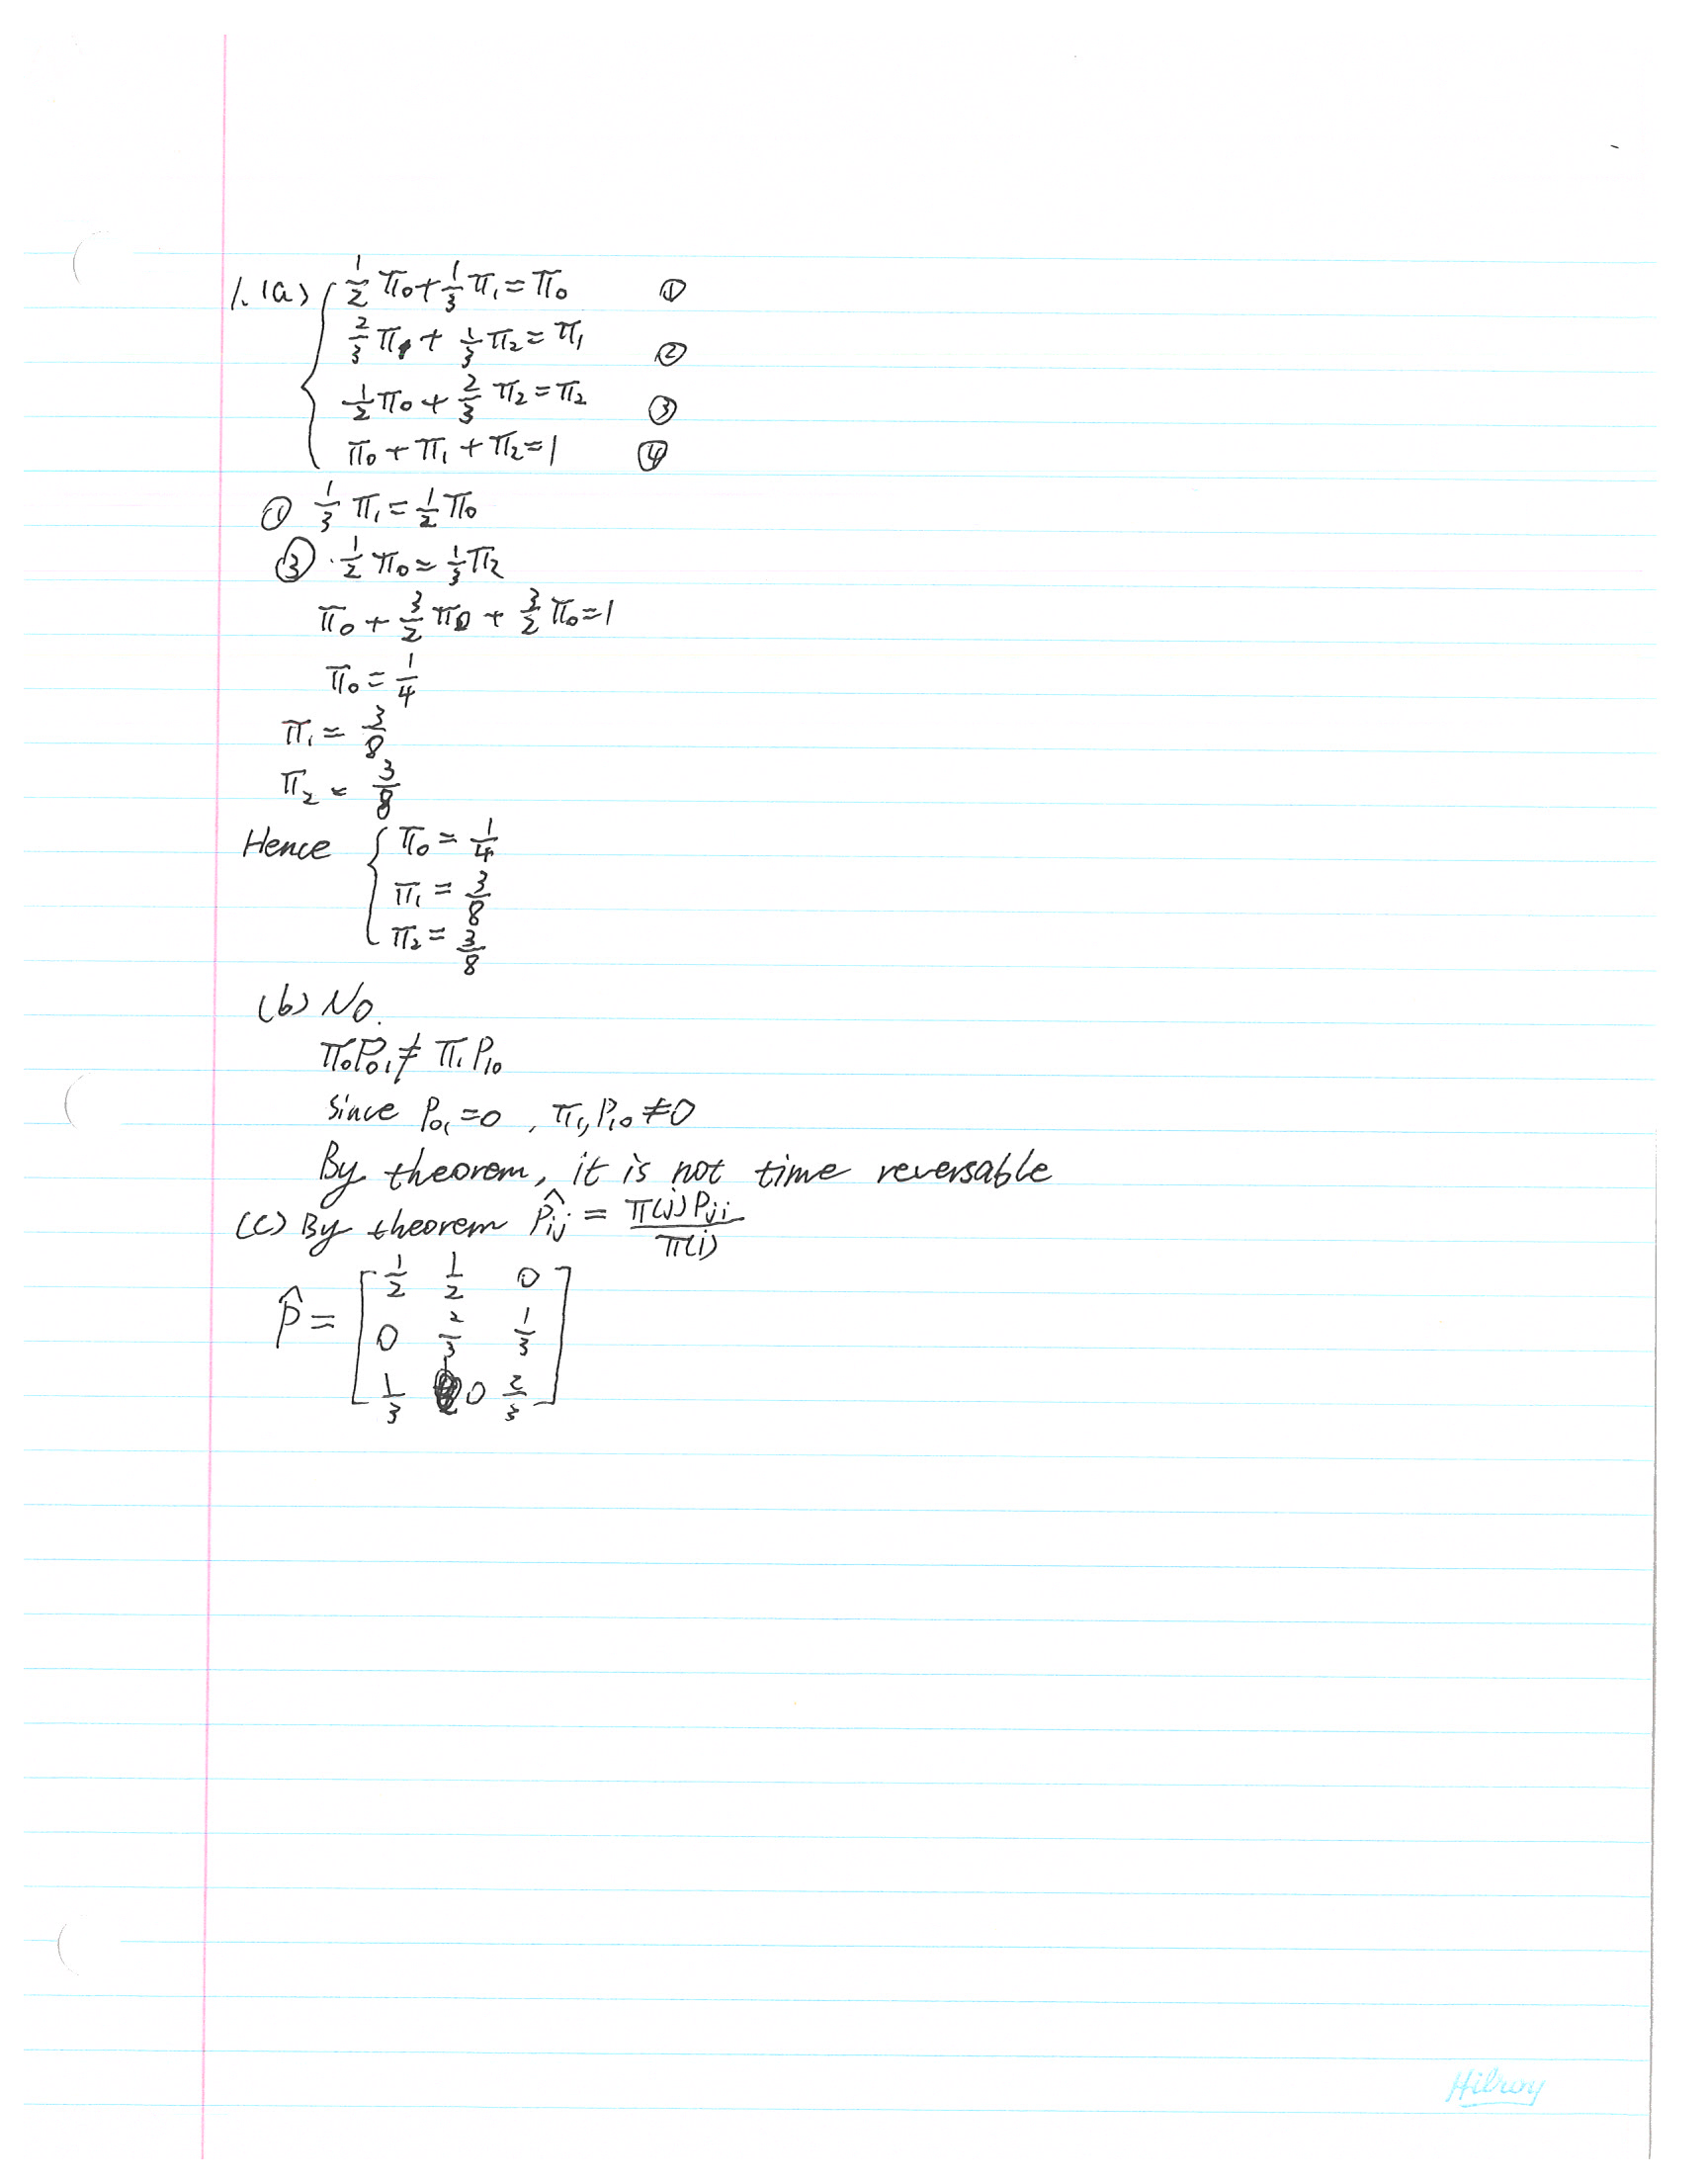 1. (a) { 1/2 π₀ + 1/3 π₁ = π₀ ①
2/3 π₁ + 1/3 π₂ = π₁ ②
1/2 π₀ + 2/3 π₂ = π₂ ③
π₀ + π₁ + π₂ = 1 ④
① 1/3 π₁ = 1/2 π₀
③ · 1/2 π₀ = 1/3 π₂
π₀ + 3/2 π₀ + 3/2 π₀ = 1
π₀ = 1/4
π₁ = 3/8
π₂ = 3/8
Hence { π₀ = 1/4
π₁ = 3/8
π₂ = 3/8
(b) No.
π₀P₀₁ ≠ π₁P₁₀
Since P₀₁ = 0 , π₁, P₁₀ ≠ 0
By theorem, it is not time reversable
(c) By theorem P̂ij = π(j)Pji / π(i)
P̂ = [ 1/2 1/2 0
0 2/3 1/3
1/3 0 2/3 ]
Hilroy